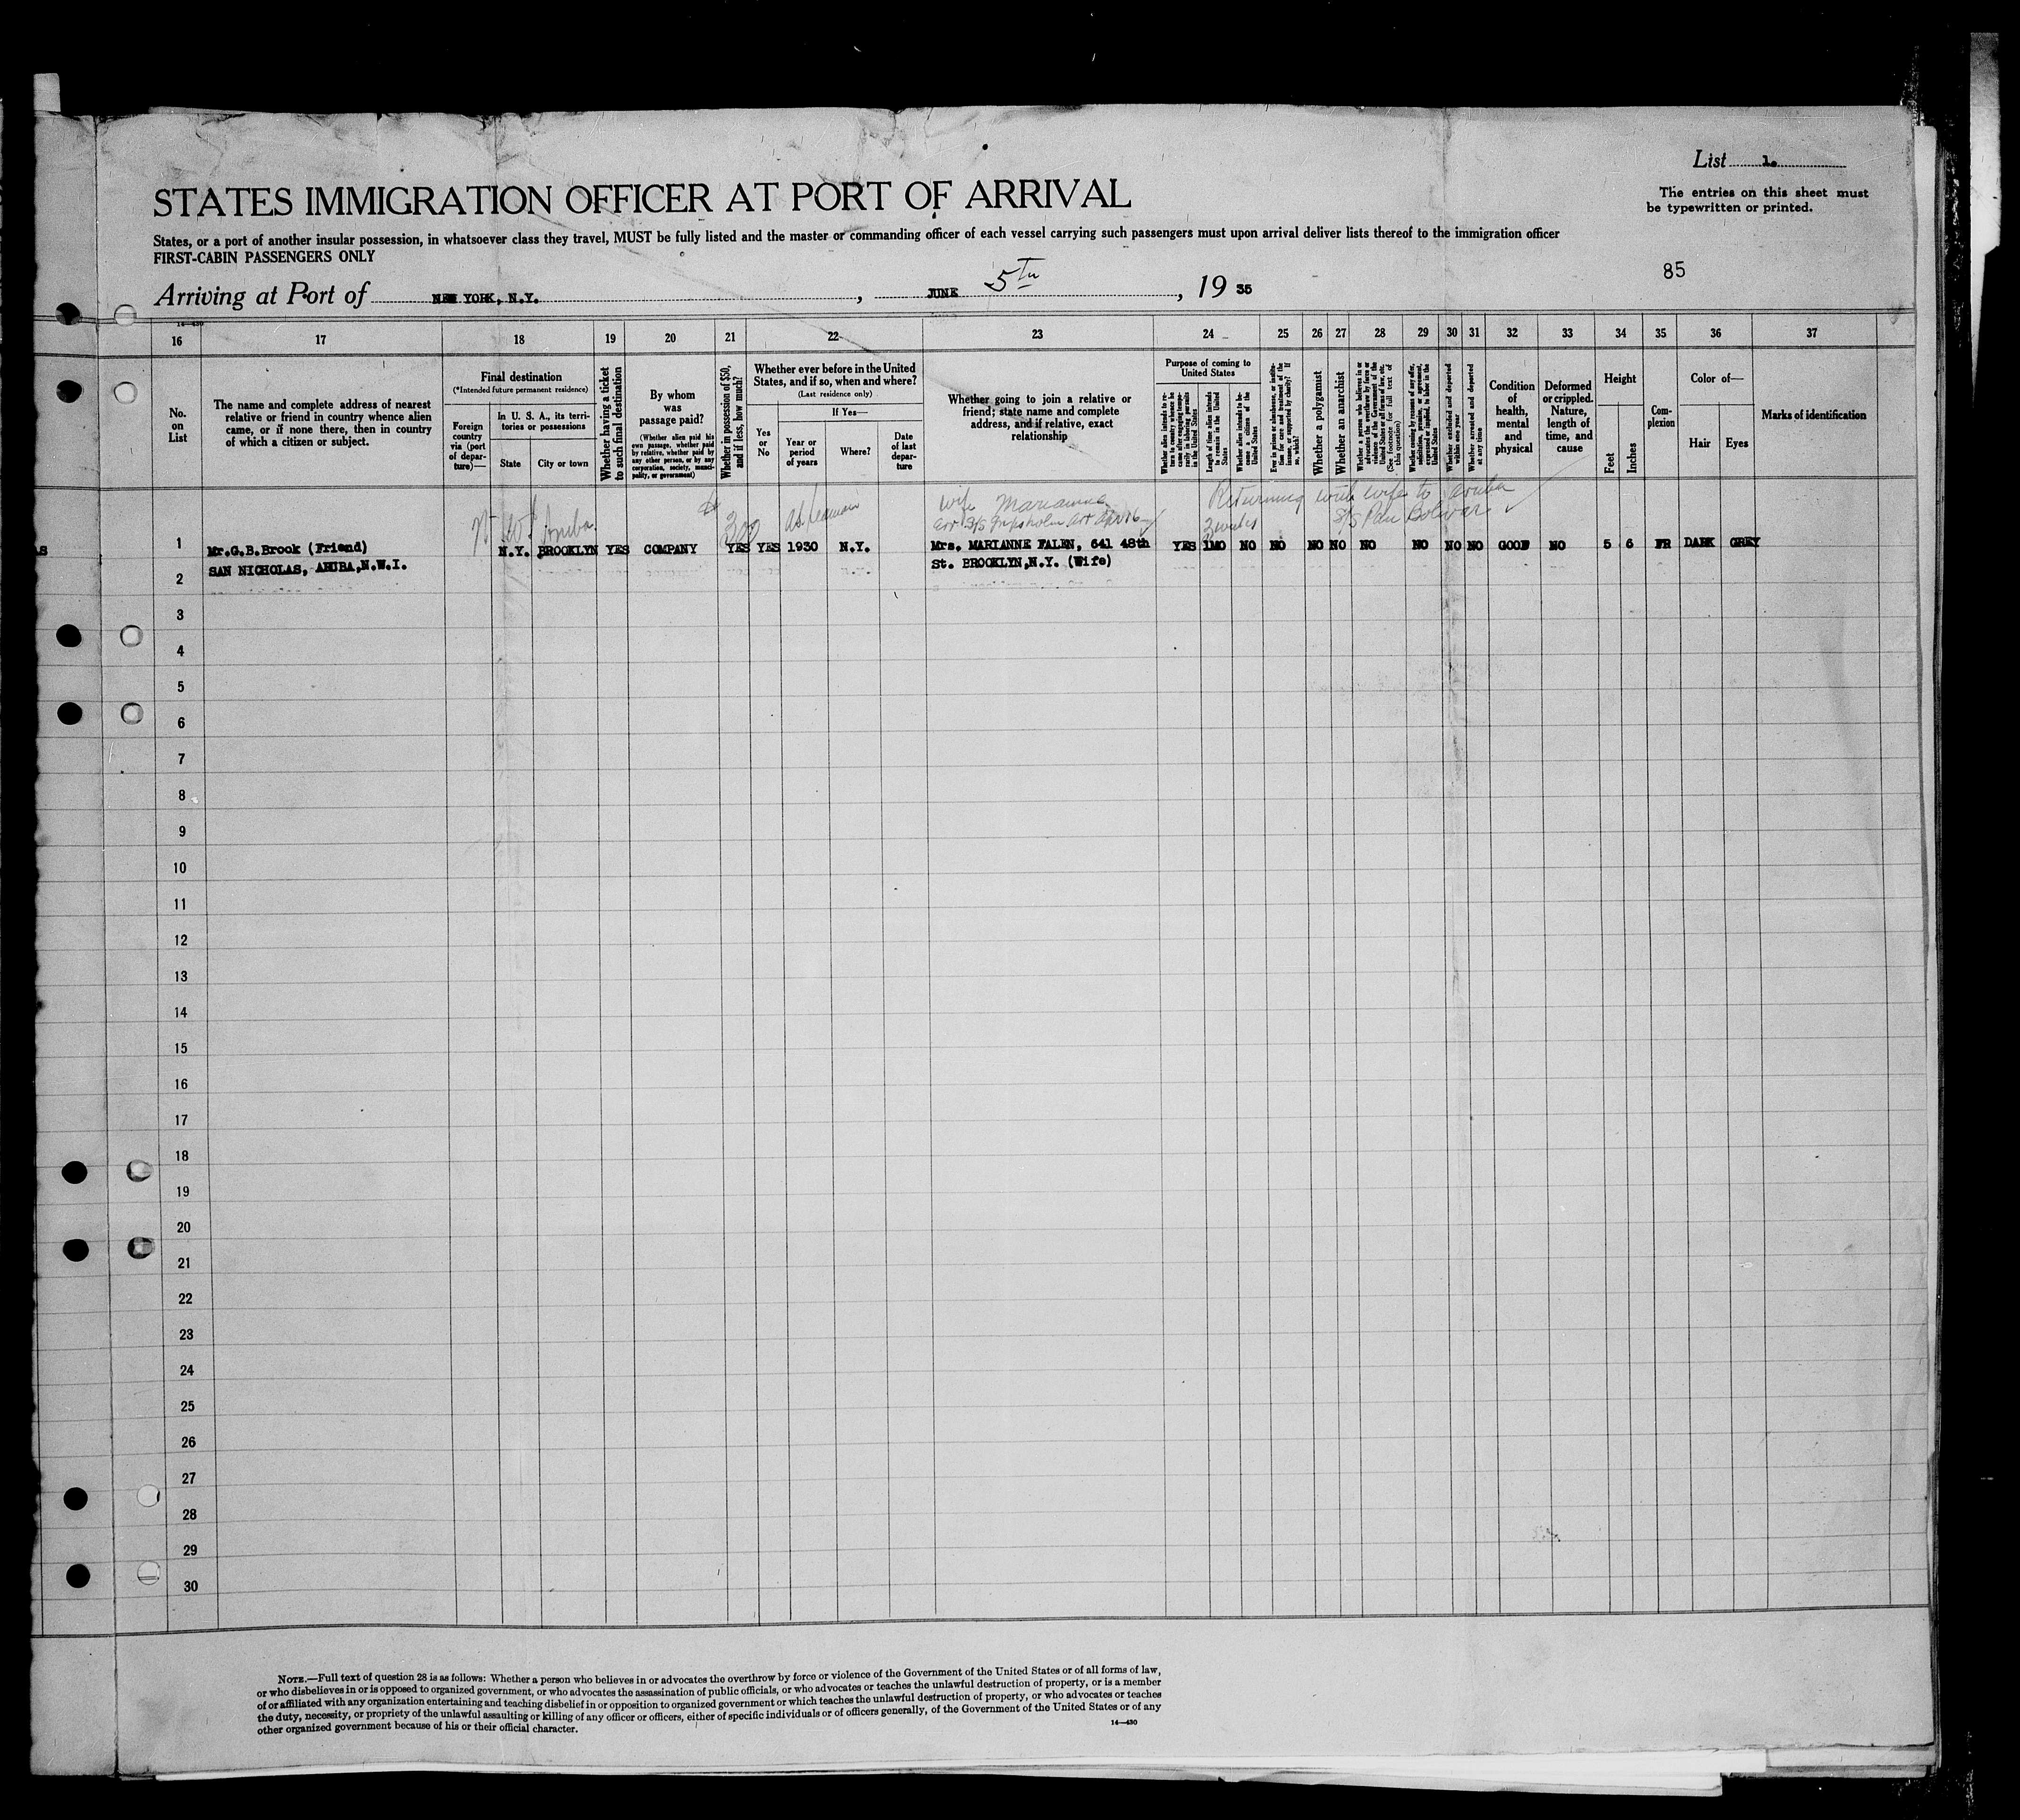 List 1.
The entries on this sheet must
be typewritten or printed.
STATES IMMIGRATION OFFICER AT PORT OF ARRIVAL
States, or a port of another insular possession, in whatsoever class they travel, MUST be fully listed and the master or commanding officer of each vessel carrying such passengers must upon arrival deliver lists thereof to the immigration officer
FIRST-CABIN PASSENGERS ONLY
85
Arriving at Port of NEW YORK, N.Y. , JUNE 5th , 19 35
14—430
16 17 18 19 20 21 22 23 24 25 26 27 28 29 30 31 32 33 34 35 36 37
No.
on
List
The name and complete address of nearest
relative or friend in country whence alien
came, or if none there, then in country
of which a citizen or subject.
Final destination
(*Intended future permanent residence)
Foreign
country
via (port
of depar-
ture)—
In U. S. A., its terri-
tories or possessions
State
City or town
Whether having a ticket
to such final destination
By whom
was
passage paid?
(Whether alien paid his
own passage, whether paid
by relative, whether paid by
any other person, or by any
corporation, society, munici-
pality, or government)
Whether in possession of $50,
and if less, how much?
Whether ever before in the United
States, and if so, when and where?
(Last residence only)
Yes
or
No
If Yes—
Year or
period
of years
Where?
Date
of last
depar-
ture
Whether going to join a relative or
friend; state name and complete
address, and if relative, exact
relationship
Purpose of coming to
United States
Whether alien intends to re-
turn to country whence he
came after engaging tempo-
rarily in laboring pursuits
in the United States
Length of time alien intends
to remain in the United
States
Whether alien intends to be-
come a citizen of the
United States
Ever in prison or almshouse, or institu-
tion for care and treatment of the
insane, or supported by charity? If
so, which?
Whether a polygamist
Whether an anarchist
Whether a person who believes in or
advocates the overthrow by force or
violence of the Government of the
United States or all forms of law, etc.
(See footnote for full text of
this question)
Whether coming by reason of any offer,
solicitation, promise, or agreement,
expressed or implied, to labor in the
United States
Whether excluded and deported
within one year
Whether arrested and deported
at any time
Condition
of
health,
mental
and
physical
Deformed
or crippled.
Nature,
length of
time, and
cause
Height
Feet
Inches
Com-
plexion
Color of—
Hair
Eyes
Marks of identification
wife Marianne
arr S/S Gripsholm arr Apr 16
Returning with wife to Aruba
S/S Pan Bolivar
Aruba
300
as seaman
3 weeks
AS
1 Mr.G.B.Brook (Friend) N.Y. BROOKLYN YES COMPANY YES YES 1930 N.Y. Mrs. MARIANNE FALEN, 641 48th YES 1MO NO NO NO NO NO NO NO NO GOOD NO 5 6 FR DARK GREY
SAN NICHOLAS, ARUBA,N.W.I. St. BROOKLYN,N.Y. (Wife)
2
3
4
5
6
7
8
9
10
11
12
13
14
15
16
17
18
19
20
21
22
23
24
25
26
27
28
29
30
NOTE.—Full text of question 28 is as follows: Whether a person who believes in or advocates the overthrow by force or violence of the Government of the United States or of all forms of law,
or who disbelieves in or is opposed to organized government, or who advocates the assassination of public officials, or who advocates or teaches the unlawful destruction of property, or is a member
of or affiliated with any organization entertaining and teaching disbelief in or opposition to organized government or which teaches the unlawful destruction of property, or who advocates or teaches
the duty, necessity, or propriety of the unlawful assaulting or killing of any officer or officers, either of specific individuals or of officers generally, of the Government of the United States or of any
other organized government because of his or their official character.
14—430